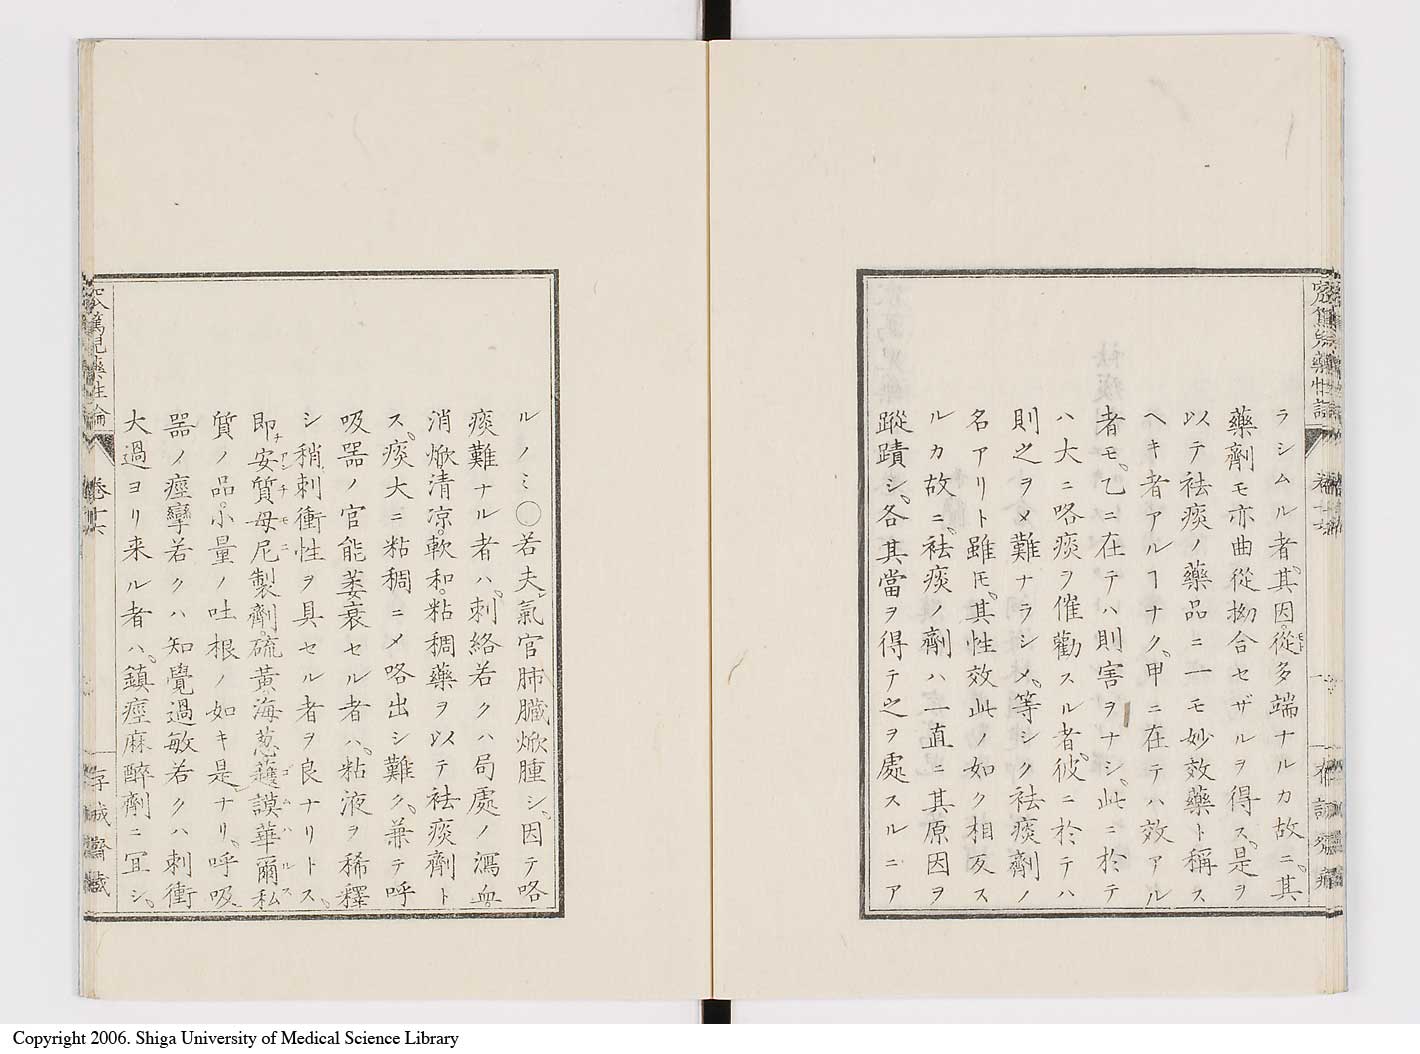 ラシムル者。其因。從多端ナルカ故ニ。其
藥劑モ亦曲從拗合セザルヲ得ス。是ヲ
以テ袪痰ノ藥品ニ一モ妙效藥ト稱ス
ヘキ者アルヿナク。甲ニ在テハ效アル
者モ。乙ニ在テハ則害ヲナシ。此ニ於テ
ハ大ニ咯痰ヲ催勸スル者。彼ニ於テハ
則之ヲメ難ナラシメ。等シク袪痰劑ノ
名アリト雖𪜈。其性效此ノ如ク相反ス
ルカ故ニ。袪痰ノ劑ハ一直ニ其原因ヲ
蹤蹟シ。各其當ヲ得テ之ヲ處スルニア
ルノミ○若夫氣官肺臟焮腫シ。因テ咯
痰難ナル者ハ。刺絡若クハ局處ノ瀉血。
消焮淸凉。軟和。粘稠藥ヲ以テ袪痰劑ト
ス。痰大ニ粘稠ニメ咯出シ難ク。兼テ呼
吸器ノ官能萎衰セル者ハ。粘液ヲ稀釋
シ稍刺衝性ヲ具セル者ヲ良ナリトス。
即安質母尼製劑。硫黃海葱蘹謨華爾私
チアンチモニ
ゴムハルス
質ノ品。小量ノ吐根ノ如キ是ナリ。呼吸
器ノ痙攣若クハ知覺過敏若クハ刺衝
大過ヨリ来ル者ハ。鎮痙麻醉劑ニ宜シ。
窊篤兒藥性論
卷十六
存誠齋藏